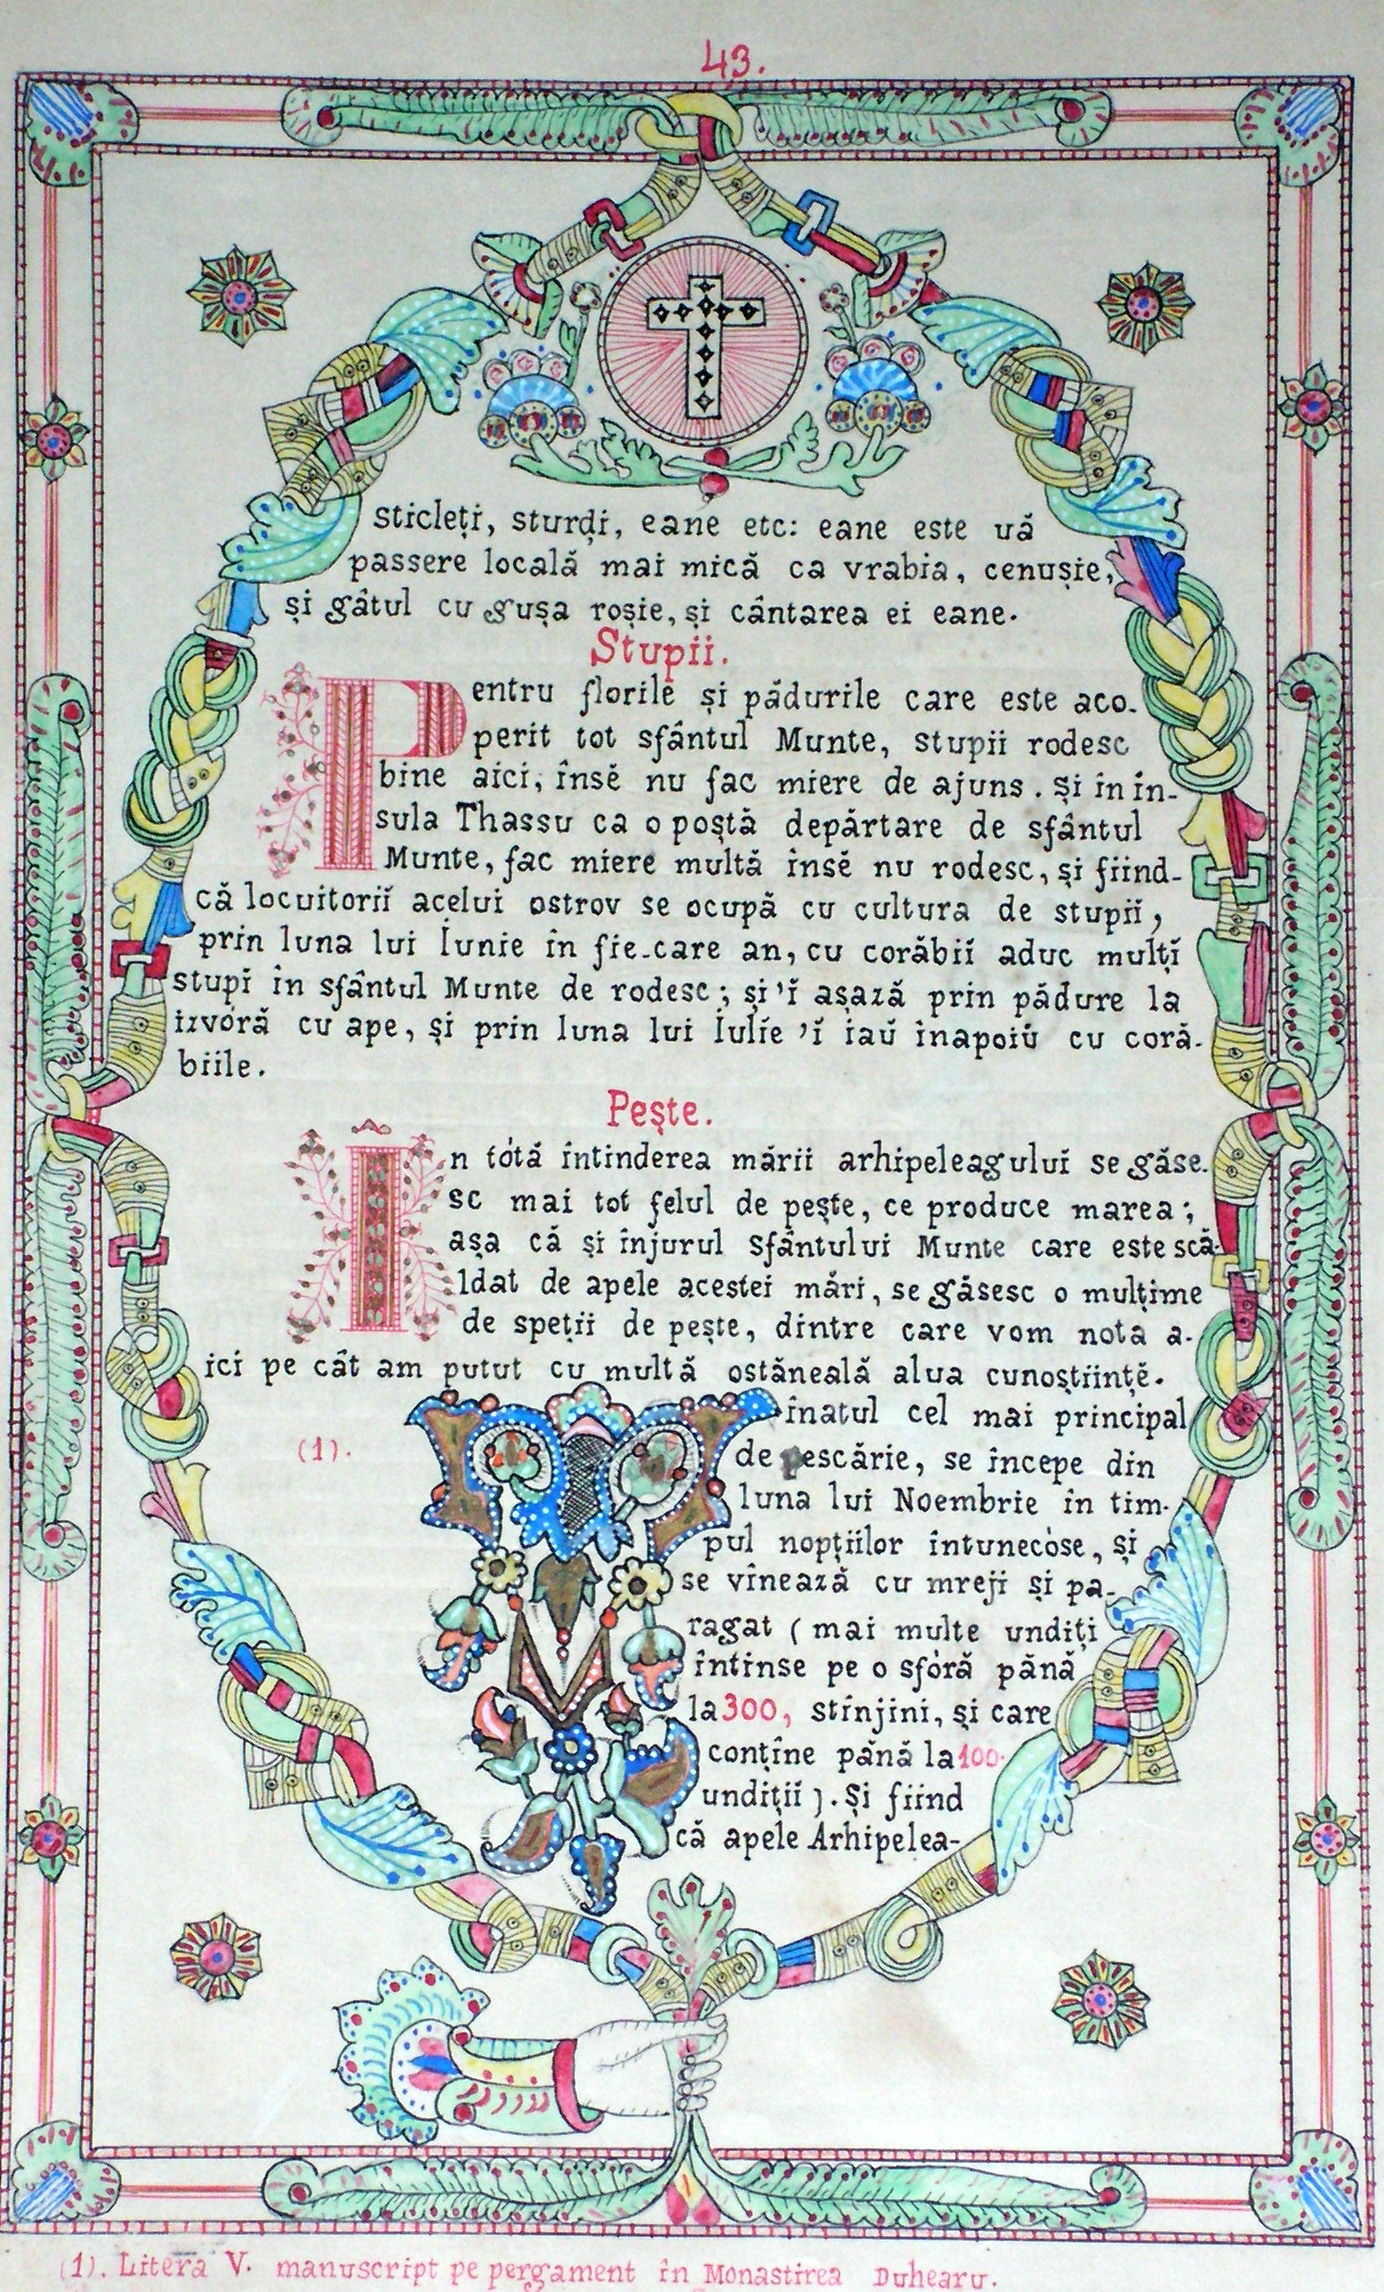 43.
sticleți, sturḑi, eane etc: eane este uă
passere locală mai mică ca vrabia, cenușie,
și gâtul cu gușa roșie, și cântarea ei eane.
Stupii.
Pentru florile și pădurile care este aco-
perit tot sfântul Munte, stupii rodesc
bine aici, însĕ nu fac miere de ajuns. Și în în-
sula Thassu ca o poștă depărtare de sfântul
Munte, fac miere multă însĕ nu rodesc, și fiind-
că locuitorii acelui ostrov se ocupă cu cultura de stupiĭ,
prin luna lui Iunie în fie-care an, cu corăbiĭ aduc mulțĭ
stupĭ în sfântul Munte de rodesc; și'ĭ așază prin pădure la
izvóră cu ape, și prin luna lui Iulie 'ĭ iaŭ înapoiŭ cu coră-
biile.
Pește.
În tótă întinderea mării arhipeleaguluĭ se găse-
sc mai tot felul de pește, ce produce marea;
așa că și înjurul Sfântului Munte care este scă-
ldat de apele acestei mări, se găsesc o mulțime
de speții de pește, dintre care vom nota a-
ici pe cât am putut cu multă ostăneală alua cunoștiințĕ.
Vînatul cel mai principal
(1).
de pescărie, se începe din
luna lui Noembrie în tim-
pul nopțiilor întunecóse, și
se vînează cu mreji și pa-
ragat (mai multe undiți
întinse pe o sfóră până
la 300, stînjini, și care
conțîne până la 100
undițiĭ). Și fiind
că apele Arhipelea-
(1). Litera V. manuscript pe pergament în Monastirea Duhearu.